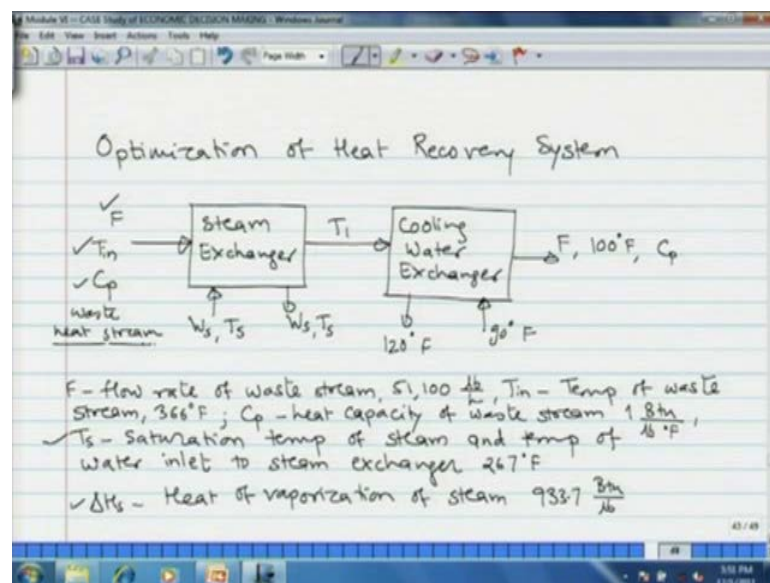 Module VI - CASE Study of ECONOMIC DECISION MAKING - Windows Journal
File Edit View Insert Actions Tools Help
Page Width
Optimization of Heat Recovery System
✓
F
✓ Tin
✓ Cp
waste
heat stream
Steam
Exchanger
T1
Cooling
Water
Exchanger
F, 100°F, Cp
Ws, Ts
Ws, Ts
120°F
90°F
F - flow rate of waste stream, 51,100 lb/h, Tin - Temp of waste
stream, 366°F; Cp - heat capacity of waste stream 1 Btu/lb °F,
✓ Ts - Saturation temp of steam and temp of
water inlet to steam exchanger 267°F
✓ ΔHs - Heat of vaporization of steam 933.7 Btu/lb
43 / 49
5:51 PM